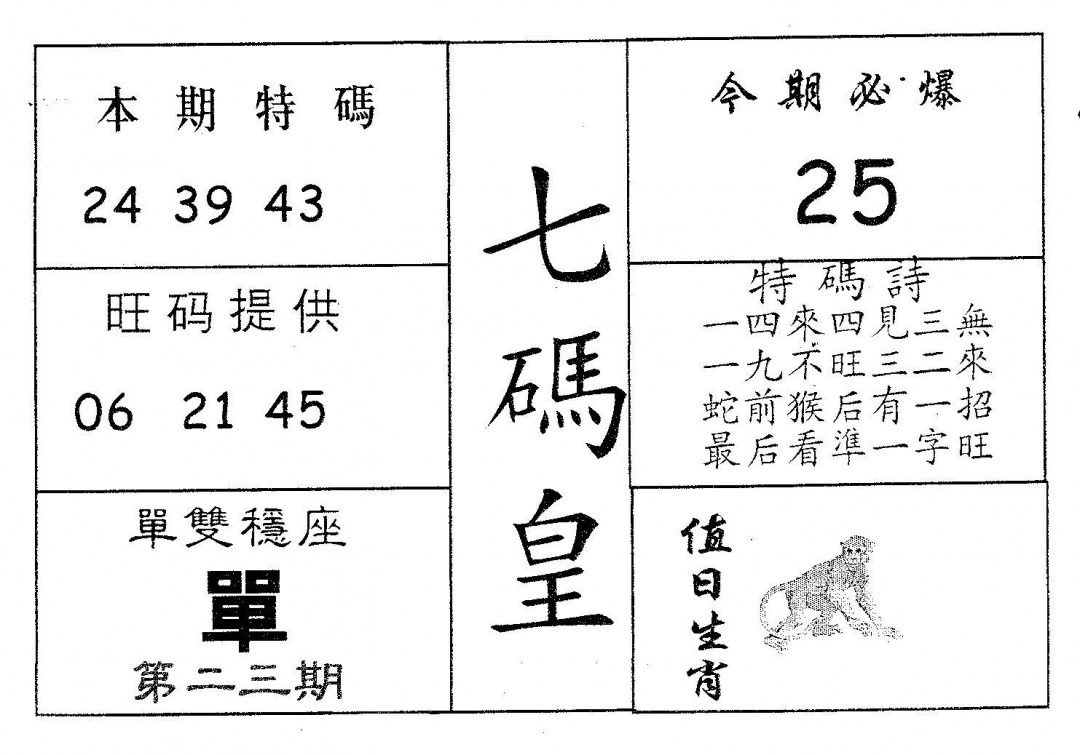 本期特碼
24 39 43
旺码提供
06 21 45
單雙穩座
單
第二三期
七碼皇
今期必爆
25
特碼詩
一四來四見三無
一九不旺三二來
蛇前猴后有一招
最后看準一字旺
值日生肖